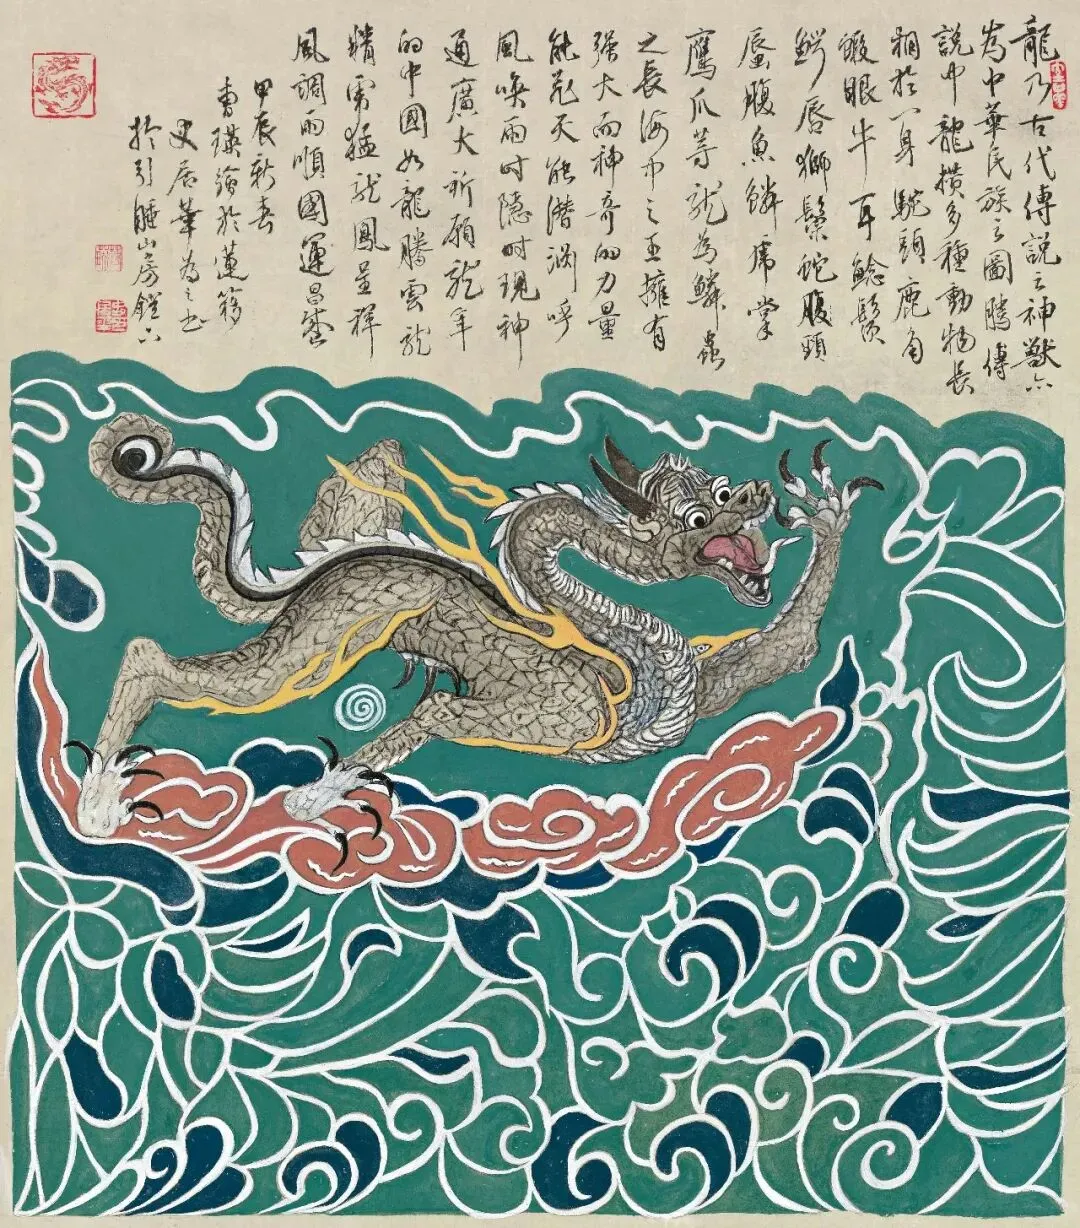 龍乃古代傳說之神獸亦
為中華民族之圖騰傳
說中龍攢多種動物長
相於一身駝頭鹿角
蝦眼牛耳鯰鬚
鱷唇獅鬃蛇腹頸
蜃腹魚鱗虎掌
鷹爪等龍為鱗蟲
之長海中之王擁有
強大而神奇的力量
能飛天能潛淵呼
風喚雨時隱時現神
通廣大祈願龍年
的中國如龍騰雲龍
精虎猛龍鳳呈祥
風調雨順國運昌盛
甲辰新春
曹瑛繪於蓮
史居華為之書
於引睡山房鐙下